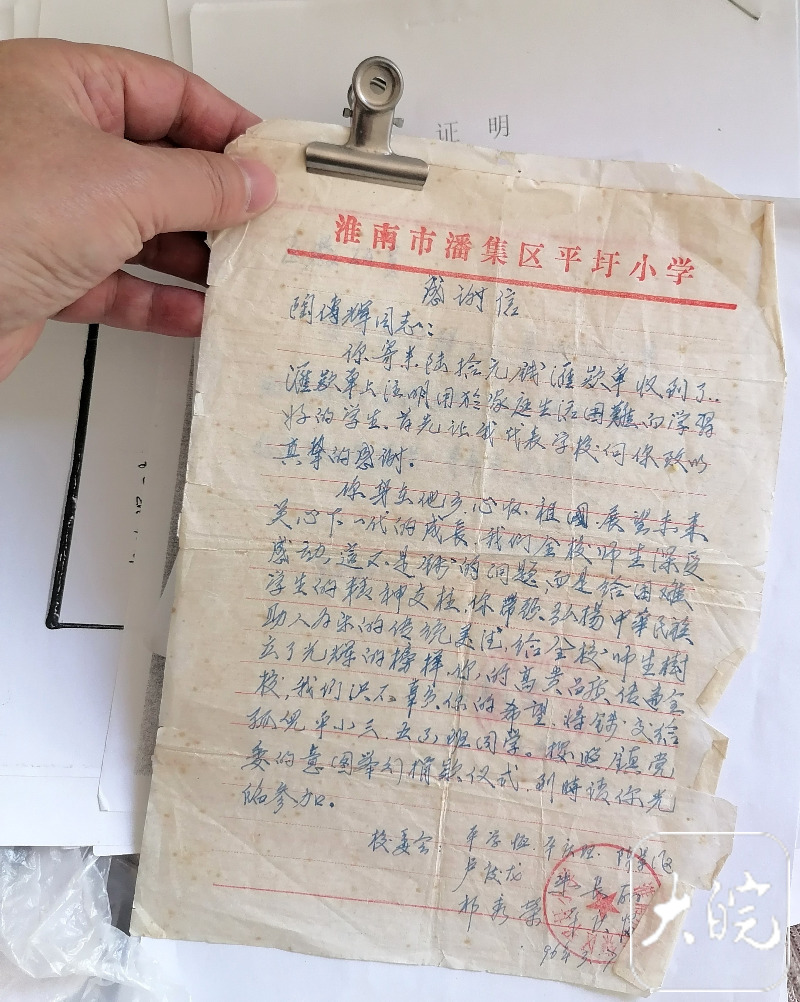 证 明
淮南市潘集区平圩小学
感谢信
陶传辉同志:
你寄来陆拾元钱滙款单收到了.
滙款单上注明用於家庭生活困難,而学習
好的学生、首先让我代表学校向你致以
真挚的感谢.
你身在他乡,心怀祖國,展望未来
关心下一代的成长,我们全校师生深受
感动,這不是钱的问题,而是给困难
学生的精神支柱,你带头弘揚中華民族
助人为乐的传统美德,给全校师生樹
立了光辉的榜样,你的高贵品质传遍全
校,我们决不辜负你的希望,将钱交给
平小三、五(3)班同学。按照鎮党
委的意图举行捐款仪式,到時请你光
临参加。
校委会:
96年
大皖